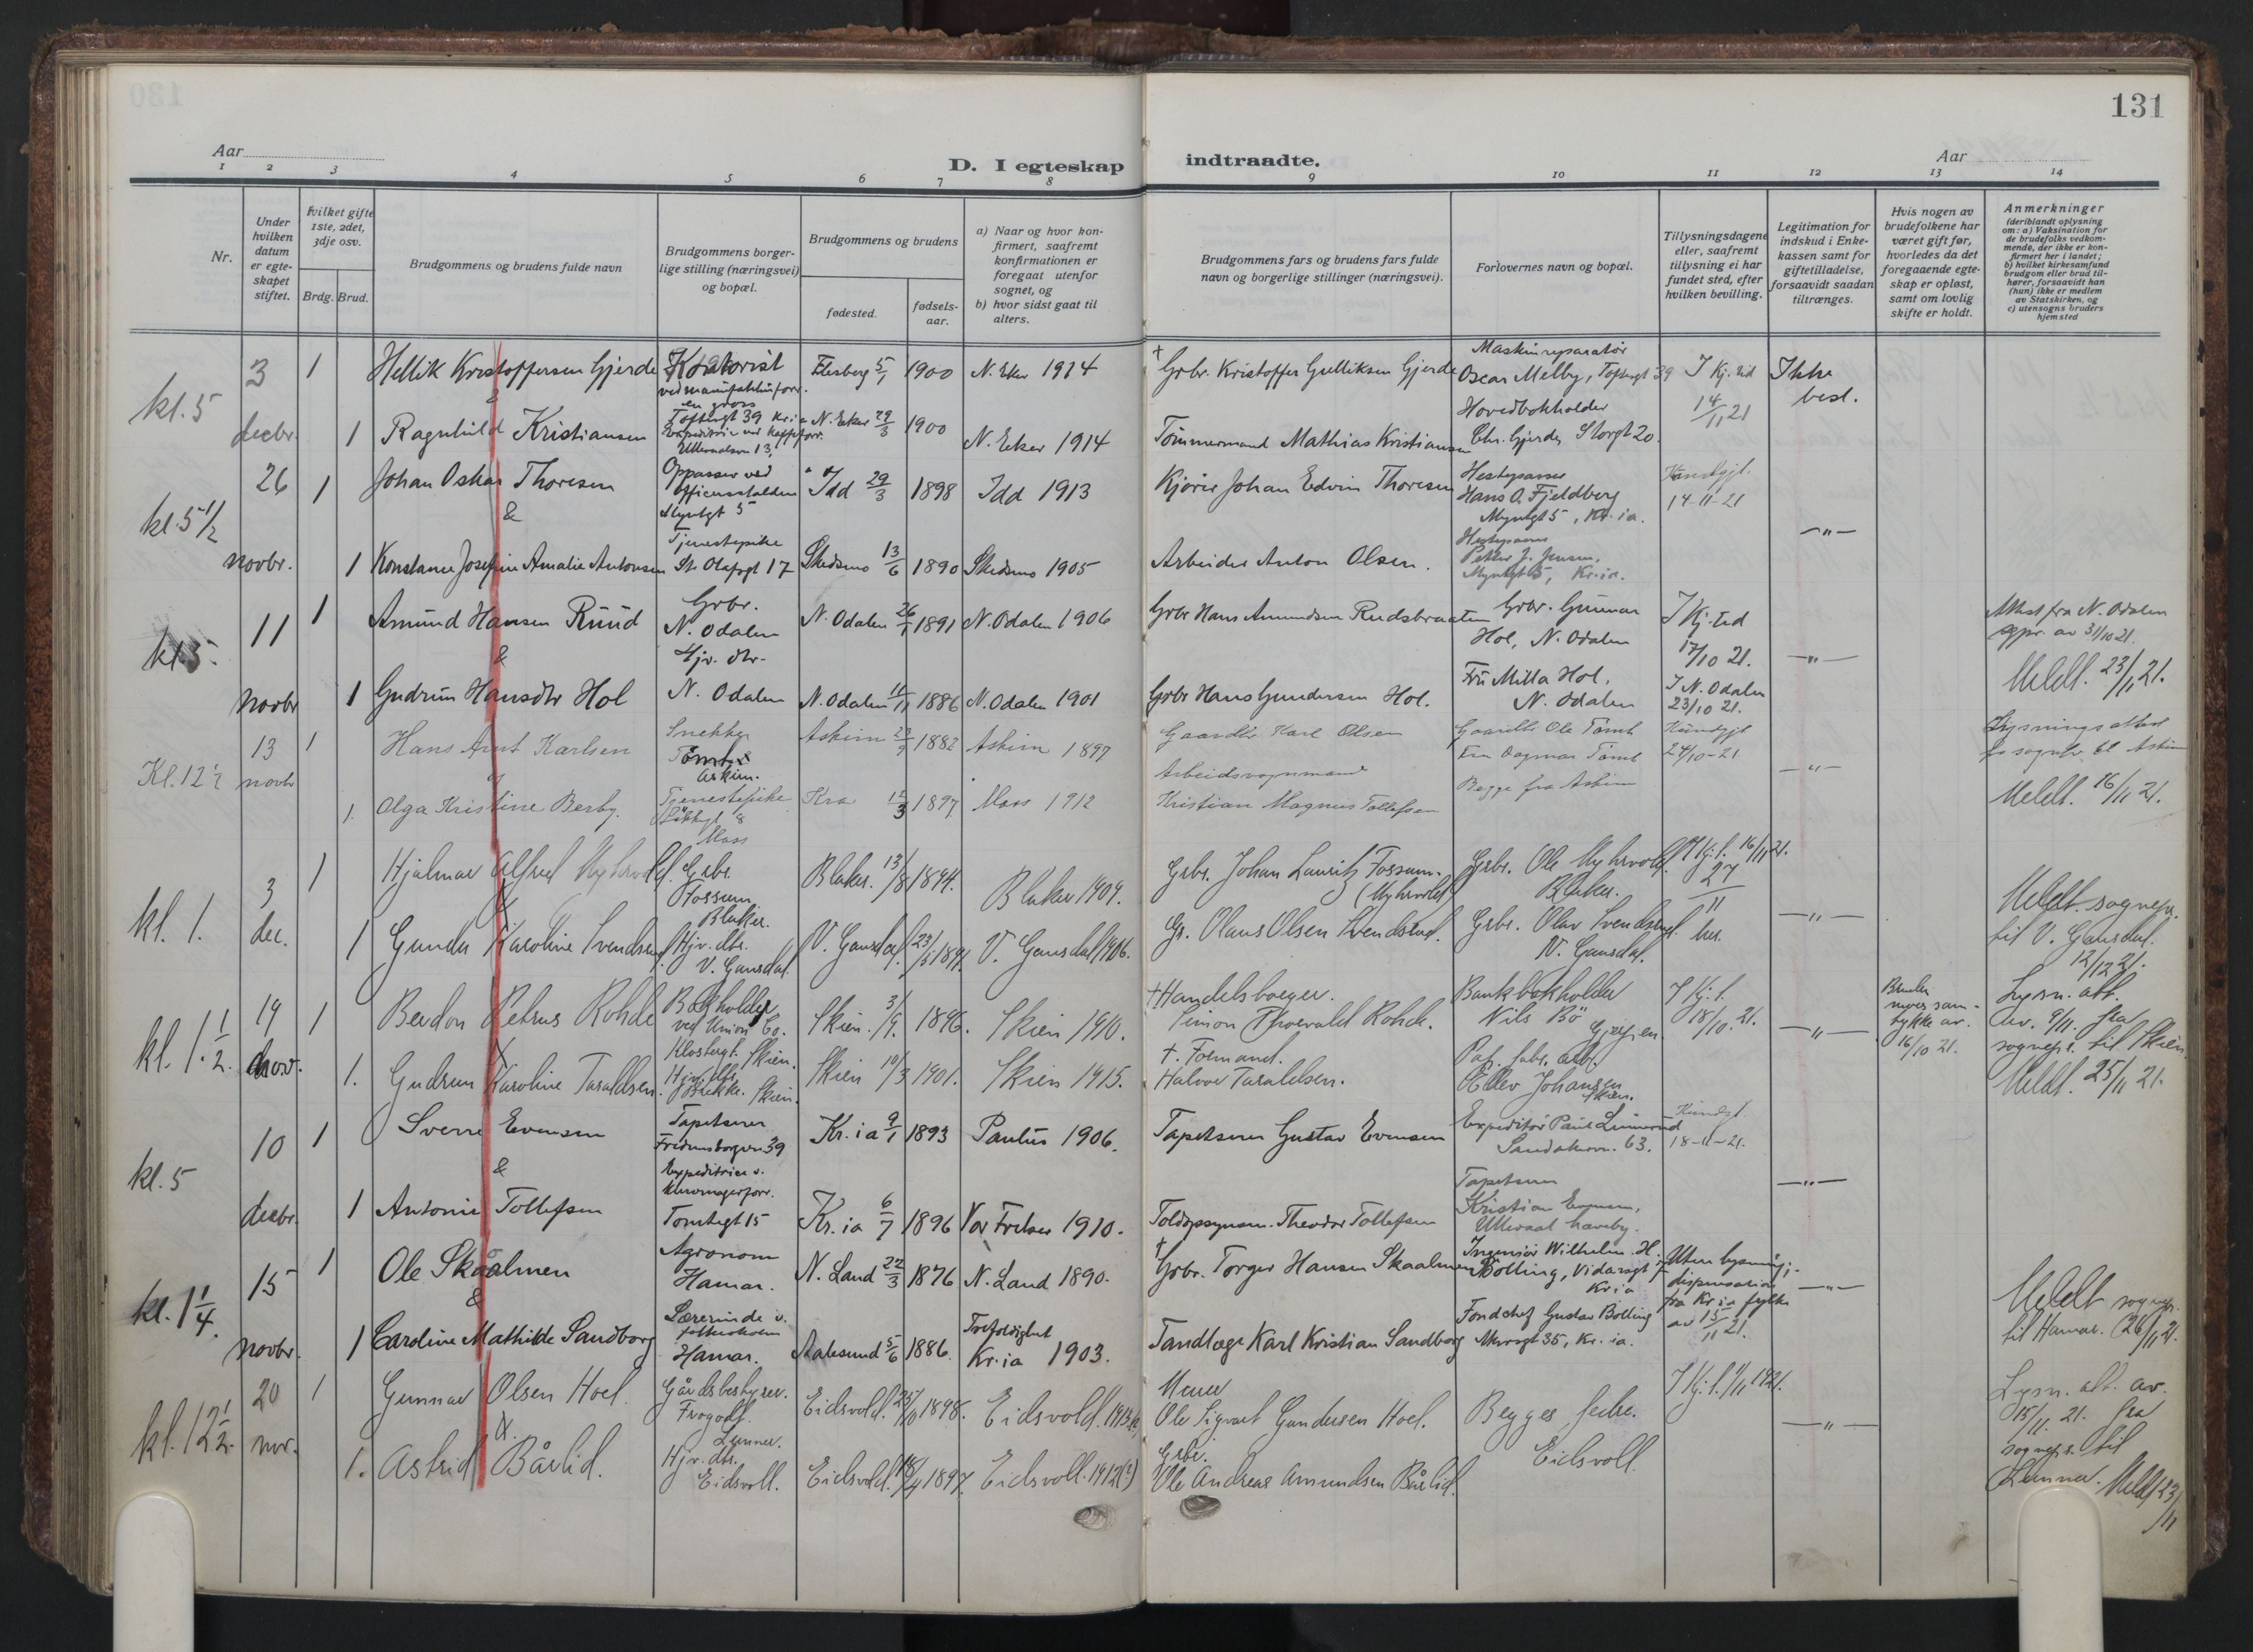 131
Aar
D. I egteskap indtraadte.
Aar
1 2 3 4 5 6 7 8 9 10 11 12 13 14
Nr.
Under hvilken datum er egteskapet stiftet.
Hvilket gifte 1ste, 2det, 3dje osv.
Brdg. Brud.
Brudgommens og brudens fulde navn
Brudgommens borgerlige stilling (næringsvei) og bopæl.
Brudgommens og brudens
fødested.
fødselsaar.
a) Naar og hvor konfirmert, saafremt konfirmationen er foregaat utenfor sognet, og
b) hvor sidst gaat til alters.
Brudgommens fars og brudens fars fulde navn og borgerlige stillinger (næringsvei).
Forlovernes navn og bopæl.
Tillysningsdagene eller, saafremt tillysning ei har fundet sted, efter hvilken bevilling.
Legitimation for indskud i Enkekassen samt for giftetilladelse, forsaavidt saadan tiltrænges.
Hvis nogen av brudefolkene har været gift før, hvorledes da det foregaaende egteskap er opløst, samt om lovlig skifte er holdt.
Anmerkninger
(deriblandt oplysning om: a) Vaksination for de brudefolks vedkommende, der ikke er konfirmert her i landet; b) hvilket kirkesamfund brudgom eller brud tilhører, forsaavidt han (hun) ikke er medlem av Statskirken, og c) utensogns bruders hjemsted
kl. 5
3 decbr.
1 Hellik Kristoffersen Gjerde
Kontorist ved manufakturforr. en gros Toftesgt 39 Kr.ia
Flesberg 5/1 1900 N. Eker 1914
† Grbr. Kristoffer Gulliksen Gjerde
Maskinreparatør Oscar Melby, Toftesgt 39
I Kj. tid 14/11 21
Ikke besl.
&
1 Ragnhild Kristiansen
N. Eker 29/3 1900 N. Eker 1914
Tømmermand Mathias Kristiansen
Hovedbokholder Chr. Gjerde, Storgt 20.
kl. 5 1/2
26 novbr.
1 Johan Oskar Thoresen
Oppasser ved Officersstalden Myntgt 5
Idd 29/3 1898 Idd 1913
Kjører Johan Edvin Thoresen
Hestepasser Hans O. Fjeldberg Myntgt 5, Kr.ia.
Kundgjt. 14-11-21
&
1 Konstance Josefine Amalie Antonsen
Tjenestepike St. Olafsgt 17
Skedsmo 13/6 1890 Skedsmo 1905
Arbeider Anton Olsen.
Hestepasser Petter J. Jensen, Myntgt 5, Kr.ia.
—"—
kl. 5.
11 novbr
1 Amund Hansen Ruud
Grbr. N. Odalen
N. Odalen 26/1 1891 N. Odalen 1906
Grbr Hans Amundsen Rudsbraaten
Grbr. Gunnar Hol, N. Odalen
I Kj. tid 17/10 21.
—"—
Attest fra N. Odalen sgpr. av 31/10 21.
&
1 Gudrun Hansdtr Hol
Hjv. dtr. N. Odalen
N. Odalen 11/11 1886 N. Odalen 1901
Grbr Hans Gundersen Hol.
Fru Milla Hol, N. Odalen
I N. Odalen 23/10 21.
Meldt. 23/11 21.
Kl. 12 1/2
13 novbr
1 Hans Arnt Karlsen
Snekker Tømte Askim.
Askim 23/9 1882 Askim 1897
Gaardbr. Karl Olsen
Gaardbr Ole Tømt
Fru Dagmar Tømt
Begge fra Askim
Kundgjt 24/10-21
—"—
Lysningsattest fra sognepr. til Askim
og
1. Olga Kristine Berby.
Tjenestepike Moss
Kra 12/3 1897 Moss 1912
Arbeidsvognmand Kristian Magnus Tollefsen
Meldt. 16/11 21.
kl. 1.
3 dec.
1 Hjalmar Alfred Myhrvold.
Grbr. Fossum. Blaker.
Blaker. 13/8 1894. Blaker 1909.
Grbr. Johan Lauritz Fossum. (Myhrvold)
Grbr. Ole Myhrvold. Blaker.
I Kj. t. 16/11 21. 27/11 her.
—"—
&
1 Gunda Karoline Svendsrud.
Hjv. dtr. V. Gansdal.
V. Gansdal. 23/5 1891. V. Gansdal 1906.
Gr. Olaus Olsen Svendsrud.
Grbr. Olav Svendsrud. V. Gansdal.
Meldt. sognepr. til V. Gansdal. 12/12 21.
kl. 1 1/2.
19 nov.
1 Berdon Petrus Rohde
Bokholder ved Union Co. Klostergt. Skien.
Skien. 3/9. 1896. Skien 1910.
† Handelsborger. Simon Thorvald Rohde.
Bankbokholder Nils Bö Gjerpen
I Kj. t. 18/10. 21.
—"—
Bruden mors samtykke av. 16/10 21.
Lysn. att. av. 9/11. fra sognepr. til Skien.
&
1. Gudrun Karoline Taraldsen.
Hjv. dtr. Brekke. Skien.
Skien 10/3 1901. Skien 1915.
†. Formand. Halvor Taraldsen.
Pap. fabr. arb. Ellev Johansen Skien.
Meldt. 25/11 21.
kl. 5
10 decbr.
1 Sverre Evensen
Tapetserer Fredensborgvn 39
Kr.ia 9/1 1893 Paulus 1906.
Tapetserer Gustav Evensen
Expeditör Paul Linnerud Sandakervn. 63.
Kundgj. 18-11-21.
&
1 Antonie Tollefsen
Expeditrice v. Tomtegt 15
Kr.ia 6/7 1896 Vor Frelser 1910.
Toldopsynsm. Theodor Tollefsen
Tapetserer Kristian Evensen, Ullevaal haveby.
—"—
kl. 1 1/4.
15 novbr.
1 Ole Skåalmen
Agronom Hamar.
N. Land 22/3 1876 N. Land 1890.
† Grbr. Torger Hansen Skaalmen
Ingeniör Wilhelm. H. Bölling, Vidarsgt Kr.ia
Uten lysning; dispensasion fra Kr.ia fylke av 15/11 21.
—"—
&
1 Caroline Mathilde Sandborg
Lærerinde v. folkeskolen Hamar.
Aalesund 5/6 1886. Trefoldighet Kr.ia 1903.
Tandlæge Karl Kristian Sandborg
Fondchef Gustav Bölling 35, Kr.ia.
Meldt sognepr. til Hamar. 26/11 21.
kl. 12 1/2.
20 nov.
1 Gunnar Olsen Hoel.
Gårdsbestyrer. Lunner.
Eidsvold. 25/10 1898. Eidsvold. 1913
Ole Sigvart Gundersen Hoel.
Begges fedre. Eidsvoll.
I Kj. t. 1/11 1921.
—"—
Lysn. att. av. 15/11. 21. fra sognepr. til Lunner.
&.
1. Astrid Bårlid.
Hjv. dtr. Eidsvoll.
Eidsvold. 18/4 1897. Eidsvoll. 1912(?)
Grbr. Ole Andreas Amundsen Bårlid.
Meldt 23/11